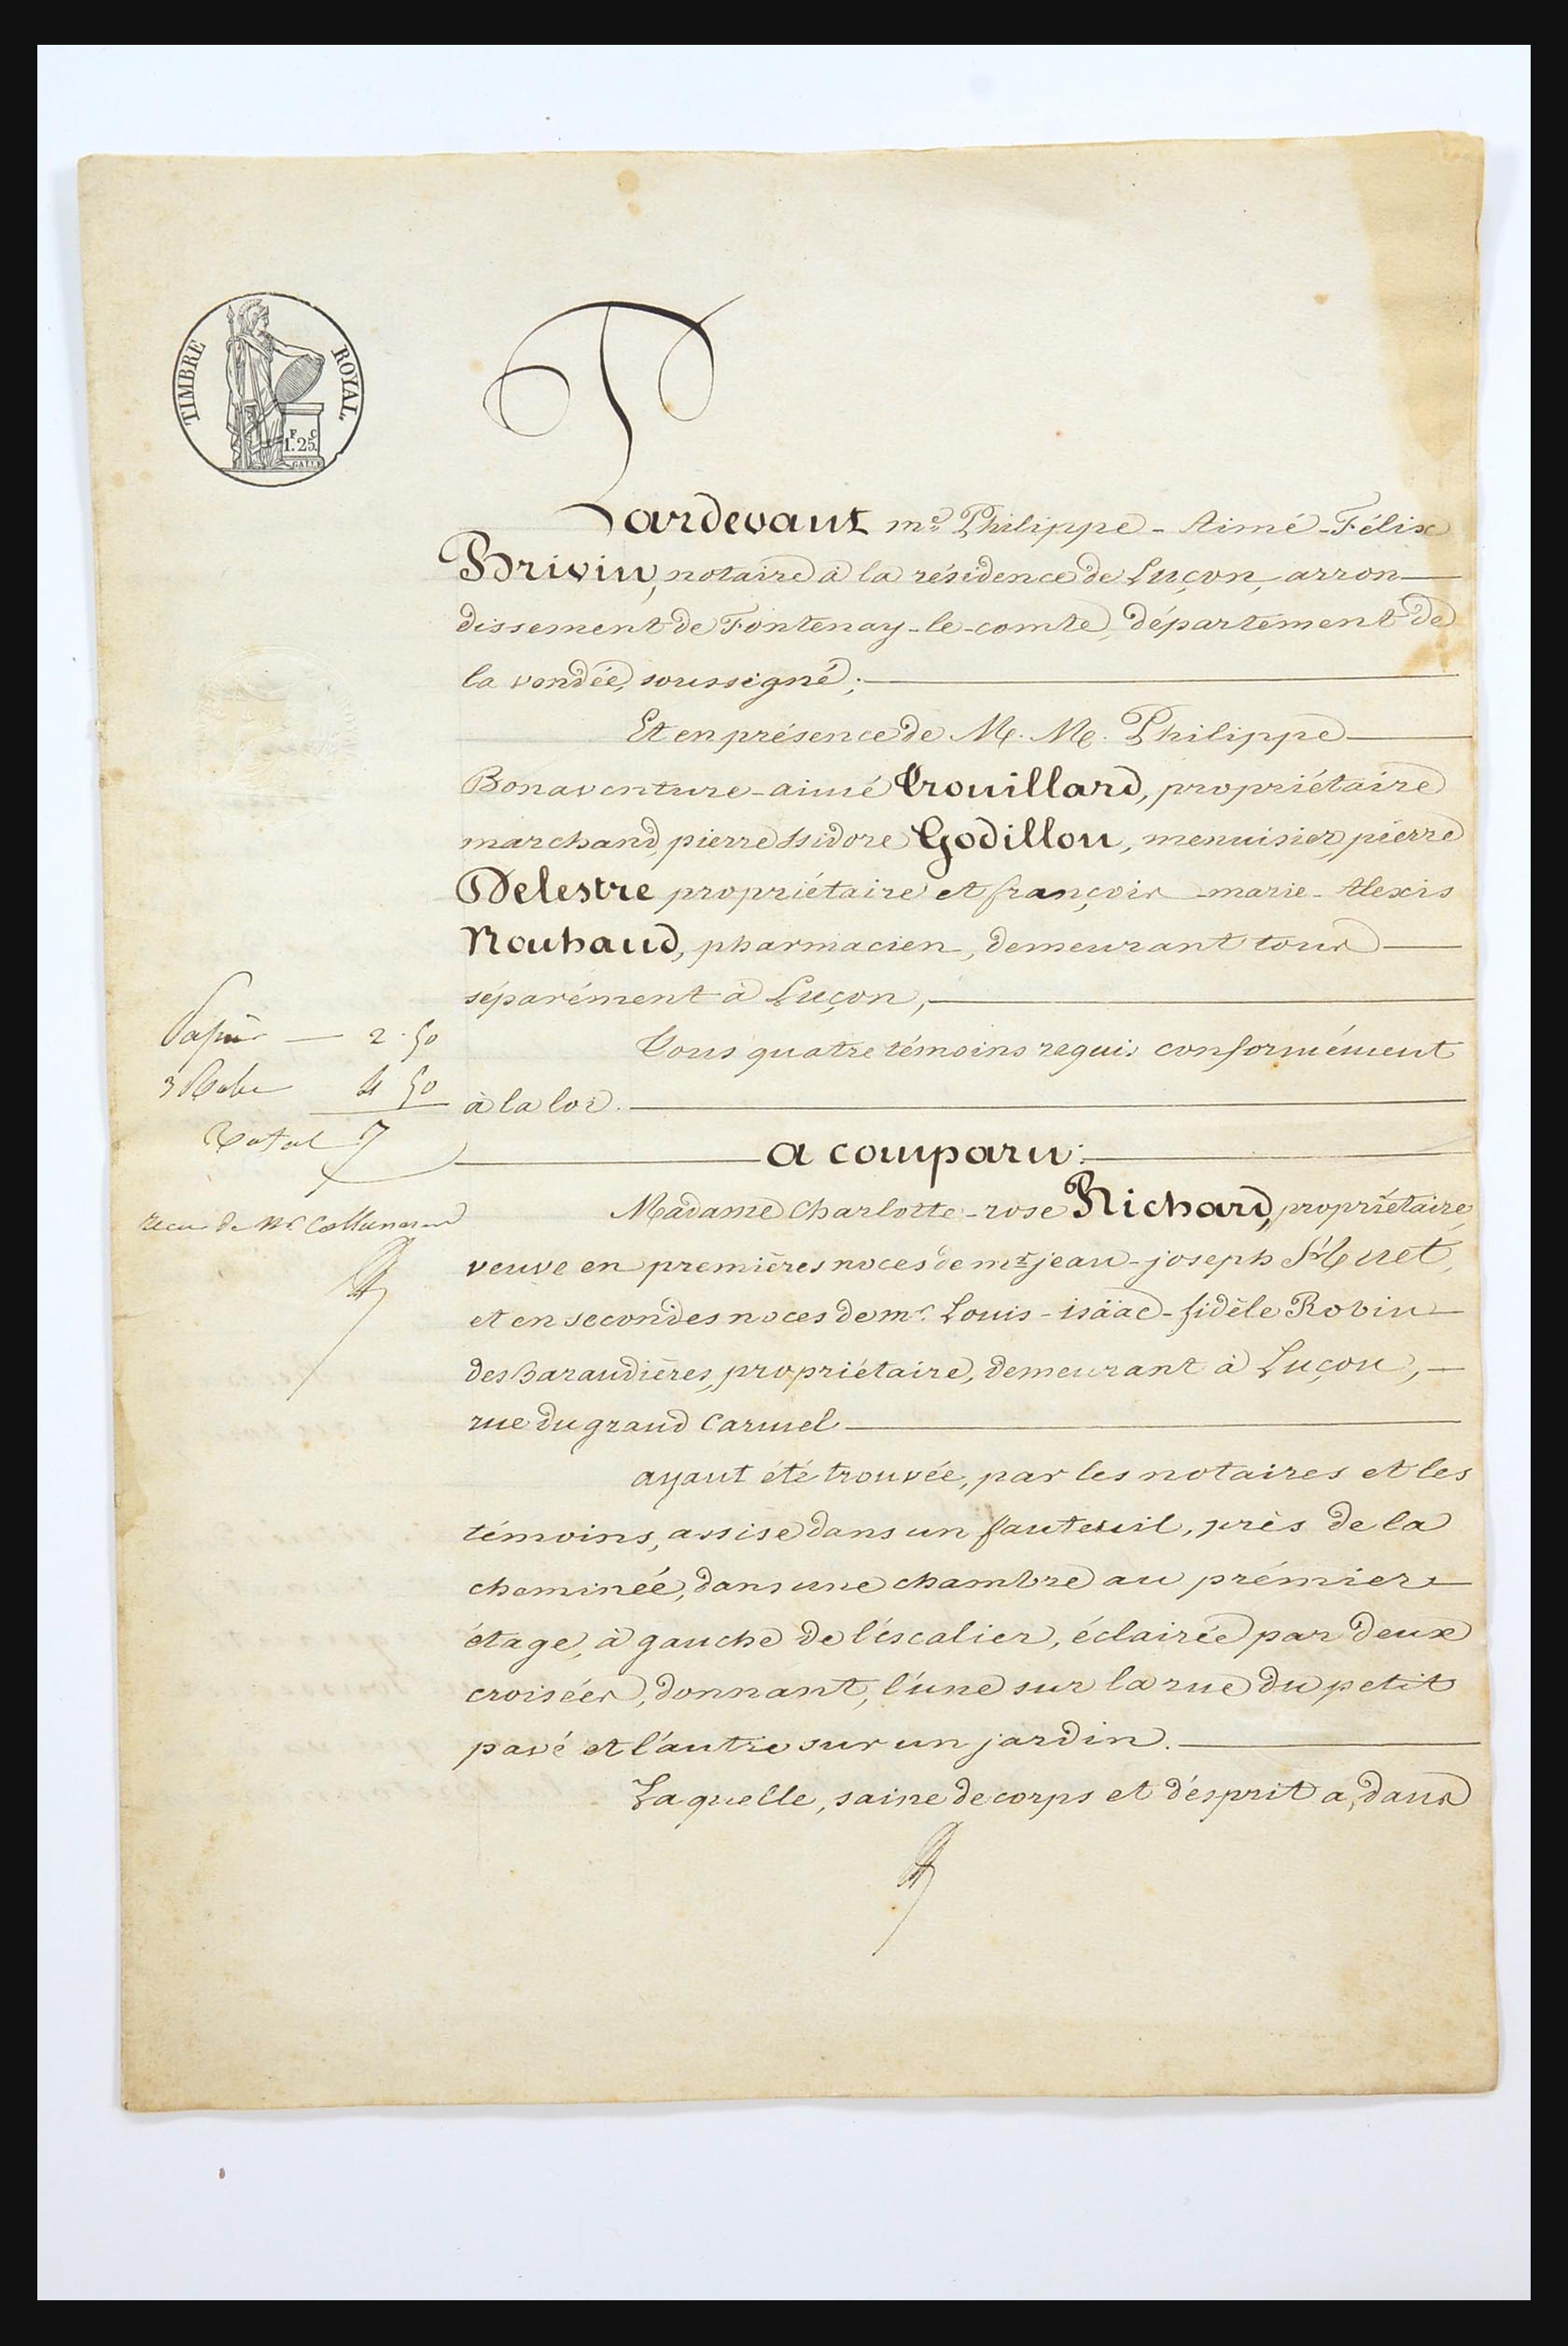 TIMBRE ROYAL
F C
1.25
GALLE
Pardevant me Philippe - Aimé - Félix
Brivin, notaire à la résidence de Luçon, arron-
dissement de Fontenay-le-comte, département de
la vendée, soussigné;
Et en présence de M. M. Philippe
Bonaventure-aimé Trouillard, propriétaire
marchand, pierre Isidore Godillon, menuisier, pierre
Delestre propriétaire et françois-marie-Alexis
Nouhaud, pharmacien, demeurant tous
séparément à Luçon,
Tous quatre témoins requis conformément
à la loi.
a comparu:
Madame Charlotte-rose Richard, propriétaire,
veuve en premières noces de mr jean-joseph Huet,
et en secondes noces de mr Louis-isäac-fidèle Robin
des baraudières, propriétaire, demeurant à Luçon,
rue du grand Carmel
ayant été trouvée, par les notaires et les
témoins, assise dans un fauteuil, près de la
cheminée, dans une chambre au prémier
étage, à gauche de l'éscalier, éclairée par deux
croisées, donnant, l'une sur la rue du petit
pavé et l'autre sur un jardin.
Laquelle, saine de corps et d'ésprit a, dans
Papier — 2.50
3 Roles 4 50
Total 7
recu de Mr